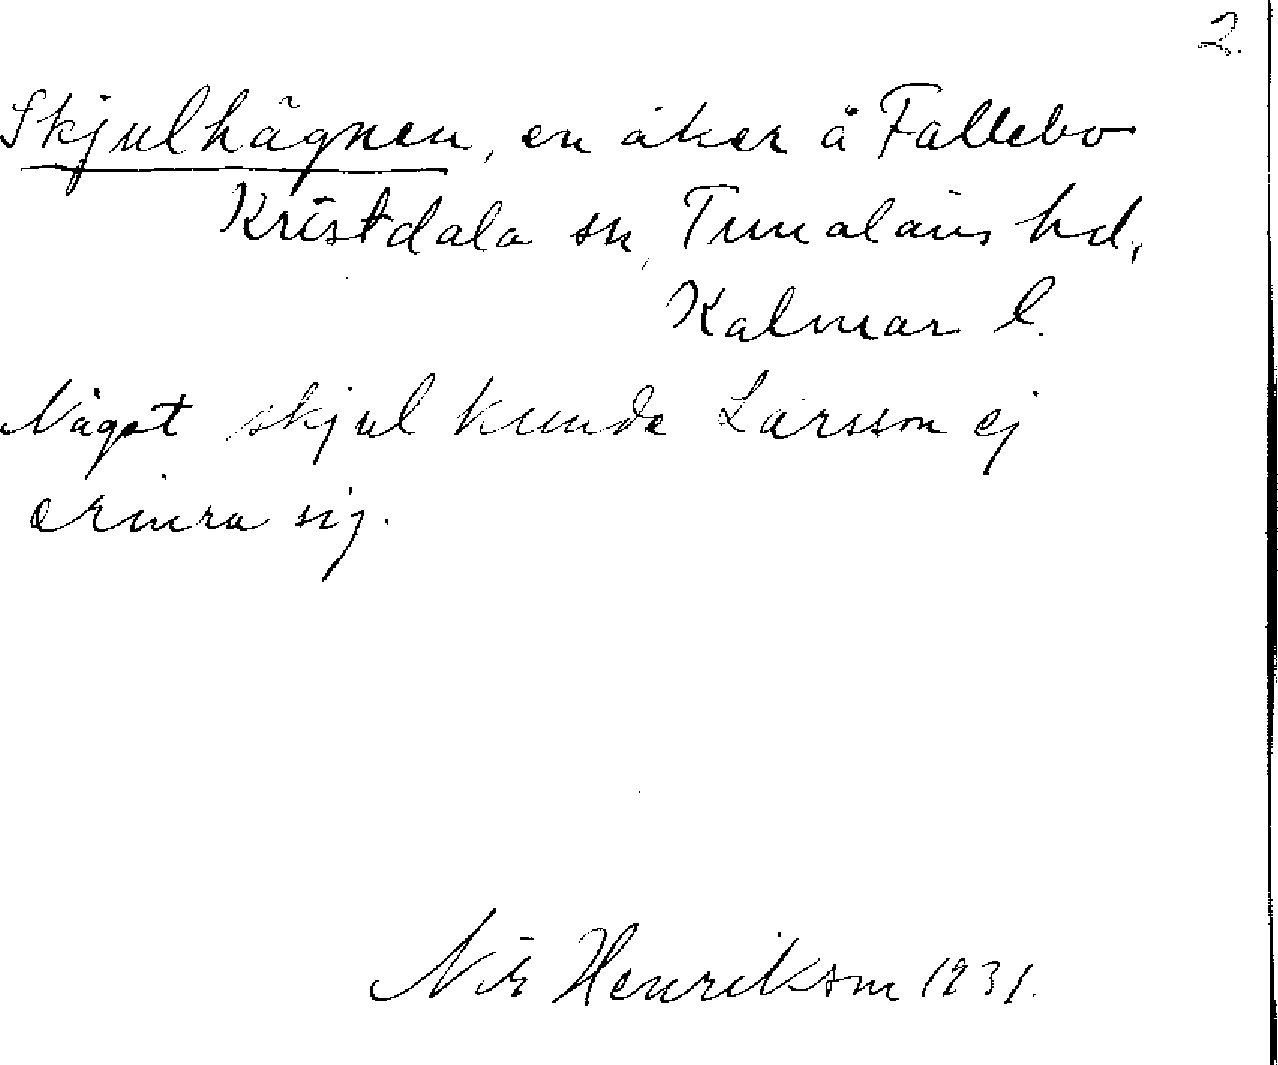 2.
Skjulhägnen, en åker å Fallebo
Kristdala sn, Tunaläns hd,
Kalmar l.
Något skjul kunde Larsson ej
erinra sig.
Nils Henriksson 1931.